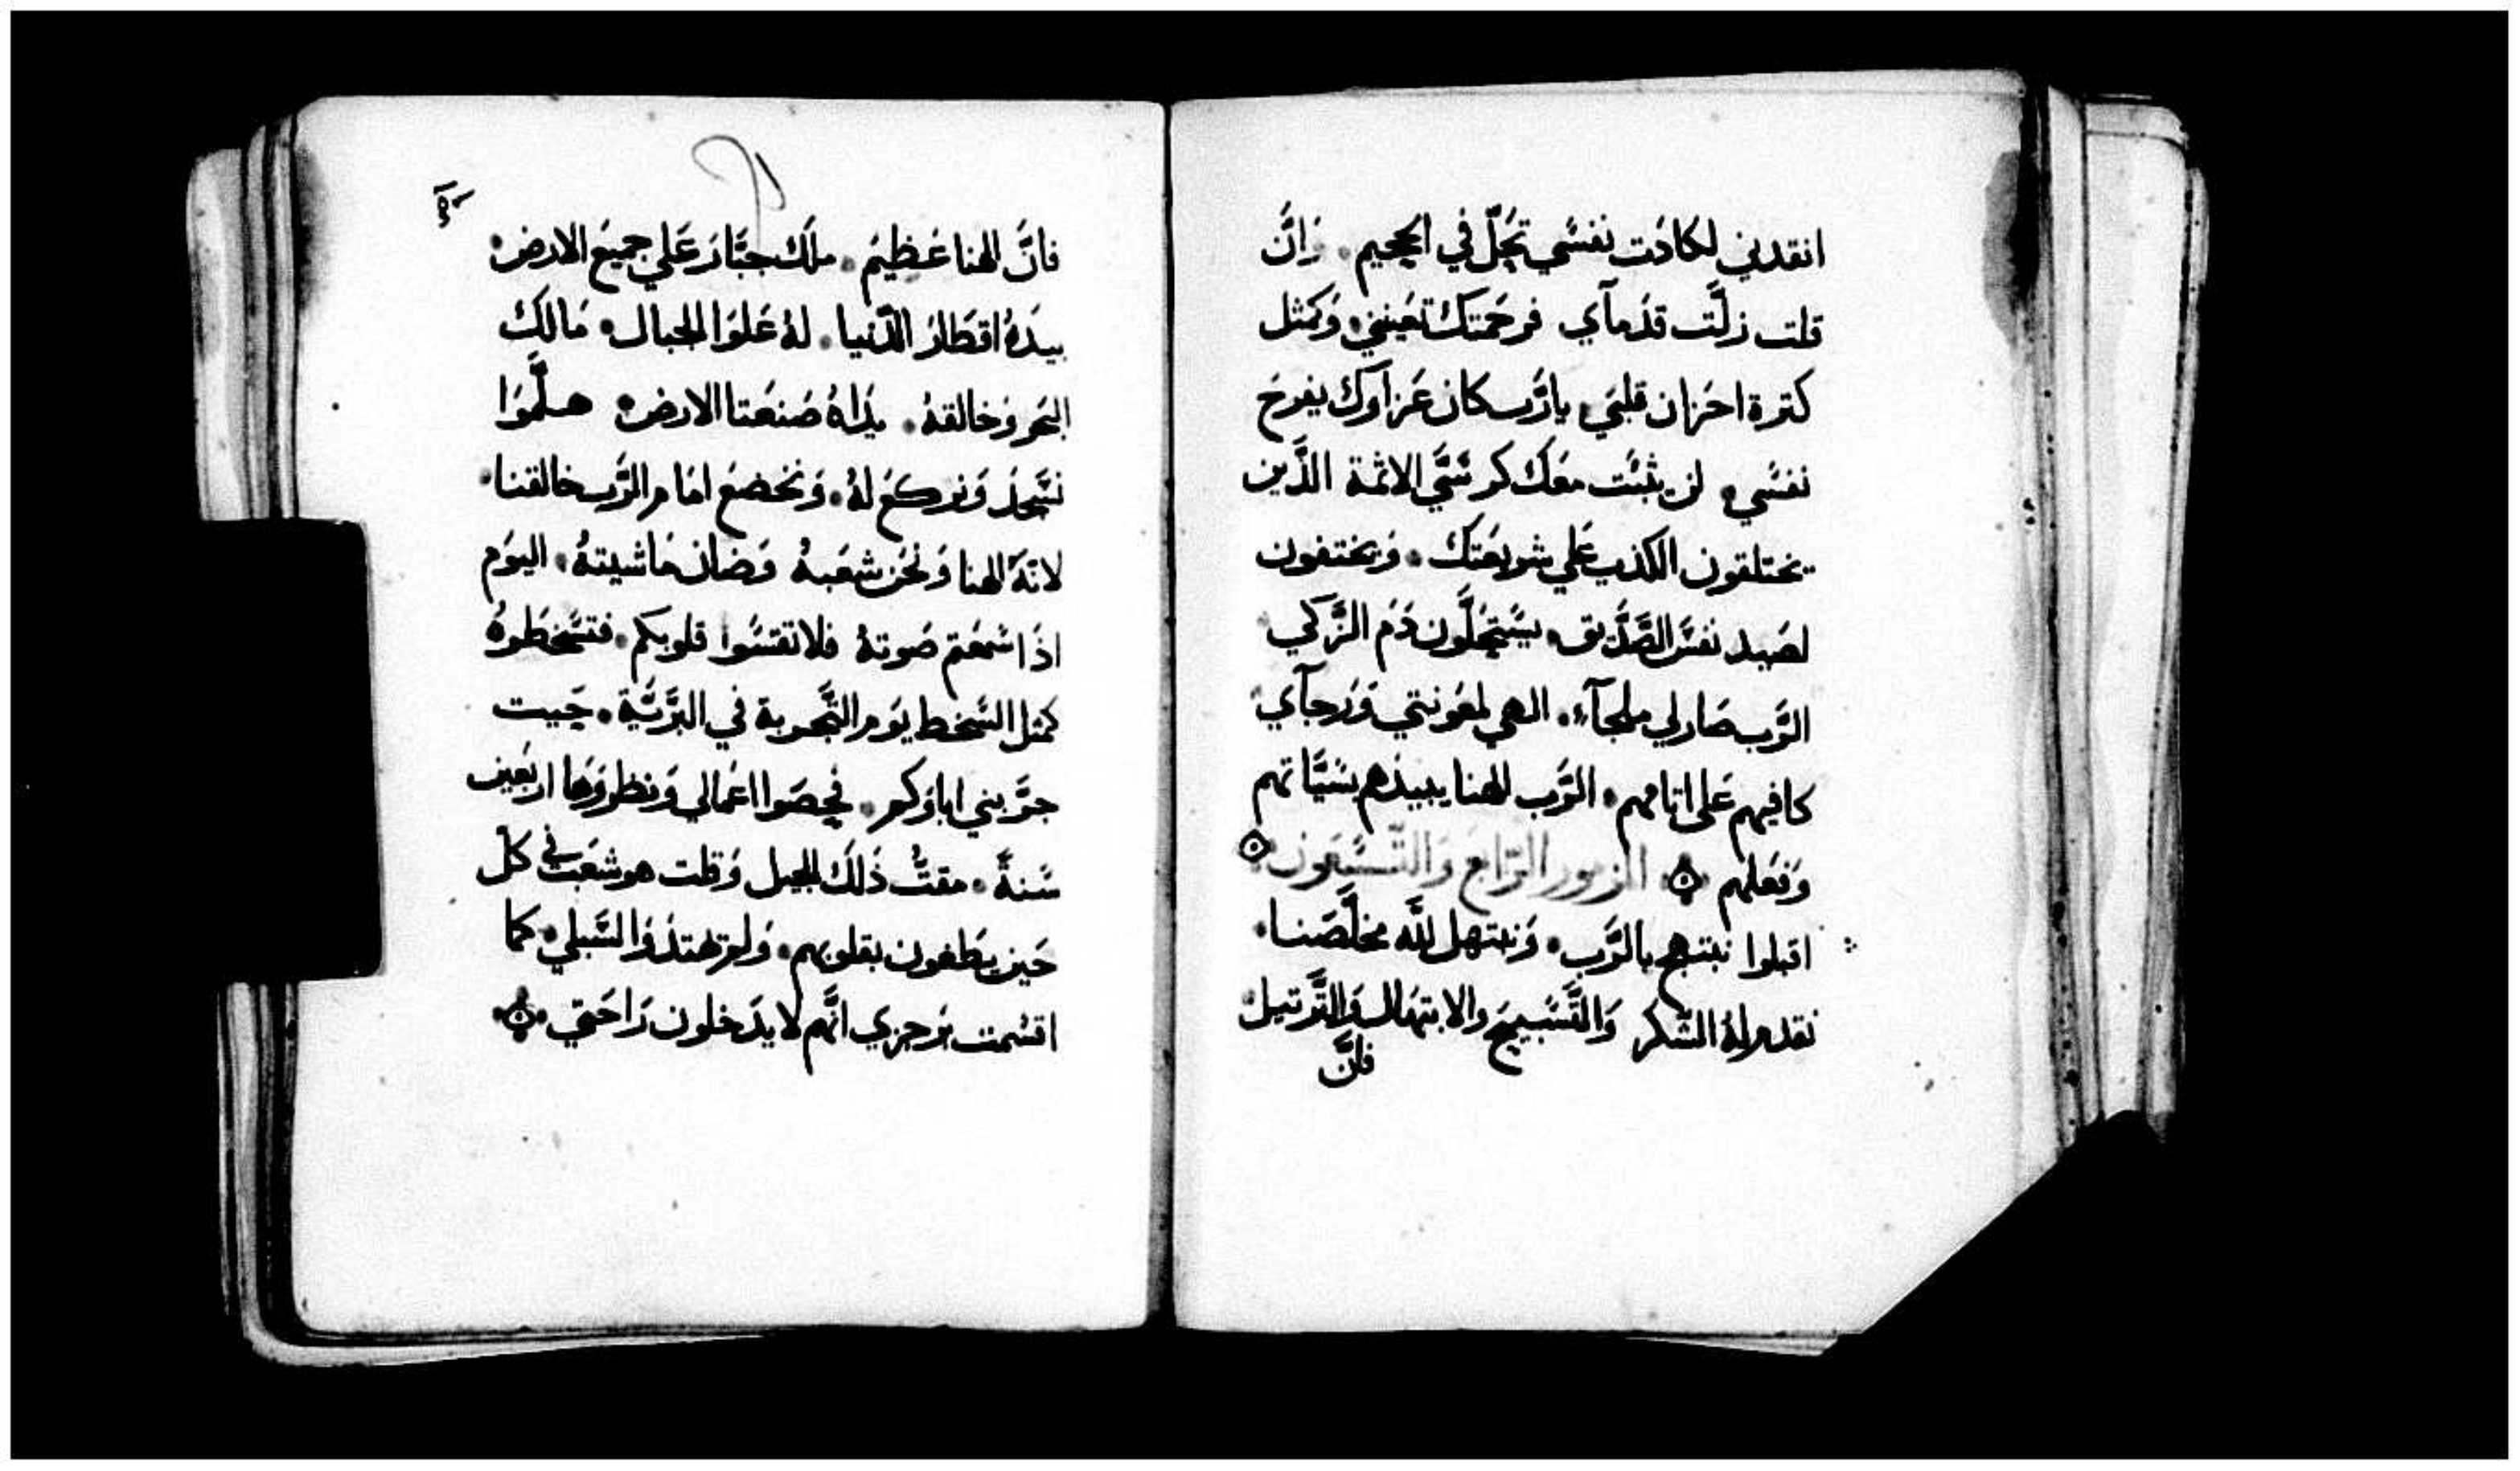 انقدني لكادَت نفسي تحُلّ في الجحيم. وَانَّ
قلت زلَّت قدَماَي فرحمَتك تعينني. وَكمثل
كترة احَزان قلبيَ ياربَّ كان عَزاوك يفرحَ
نفسي. لن يثبُت معَك كرسَّي الاثمة الذَّين
يختلقون الكذب عَلي شريعَتك. وَيختفون
لصَيد نفسَ الصَّدَّيق. يسَتحَلَّون دَم الزَّكي
الرَّب صَار لي ملجآء. الهي لمعَونتي وَرجآي
كافيهم عَلي اتامهم. الرَّب الهنا يبيدَهم بسَيَّاتهم
وَفعَلهم المزمور الرَّابع وَالتّسَعَون
اقبلوا نبتهج بالرَّب. وَنبتهل لله مخلَّصَنا.
نقدم لهُ الشّكر وَالتَّسَبيحَ والابتهَال وَالتَّرتيل.
فانَّ
فانَّ الهنا عَظيمَ. ملَك جبَّار عَلي جميعَ الارض.
بيدَهُ اقطَار الدَّنيا. لهُ عَلوَا الجبال. مَالك
البحَر وَخالقهُ. يدَاهُ صَنعَتا الارض. هلَّموَا
نسَجدَ وَنركعَ لهُ. وَنخضعَ امَام الرَّب خالقنا.
لانّهَ الهنا وَنحَن شعَبهُ وَضان مَاشيتهُ. اليوَم
اذَا سَمعَتم صَوتهُ فلا تقسَوا قلوبكم. فتسَخطَوهُ
كمثل السَخط يوَم التَّجربة في البرَّيَّة. حَيت
جرَّبني اباوَكم. فحصَوا اعَمالي وَنظروَها اربعَين
سَنةً. مقتُّ ذَلكَ الجيل وَقلت هو شعَب في كلّ
حَين يطَغون بقلوبهم. وَلم يهتدَوَا لسَبلي. كما
اقسَمت برجزي انَّهم لا يدَخلون رَاحَتي.